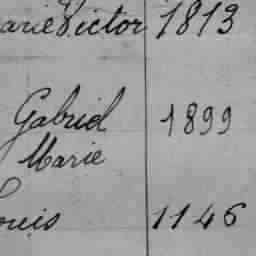 arie Victor 1813
Gabriel 1899
Marie
ouis 1146